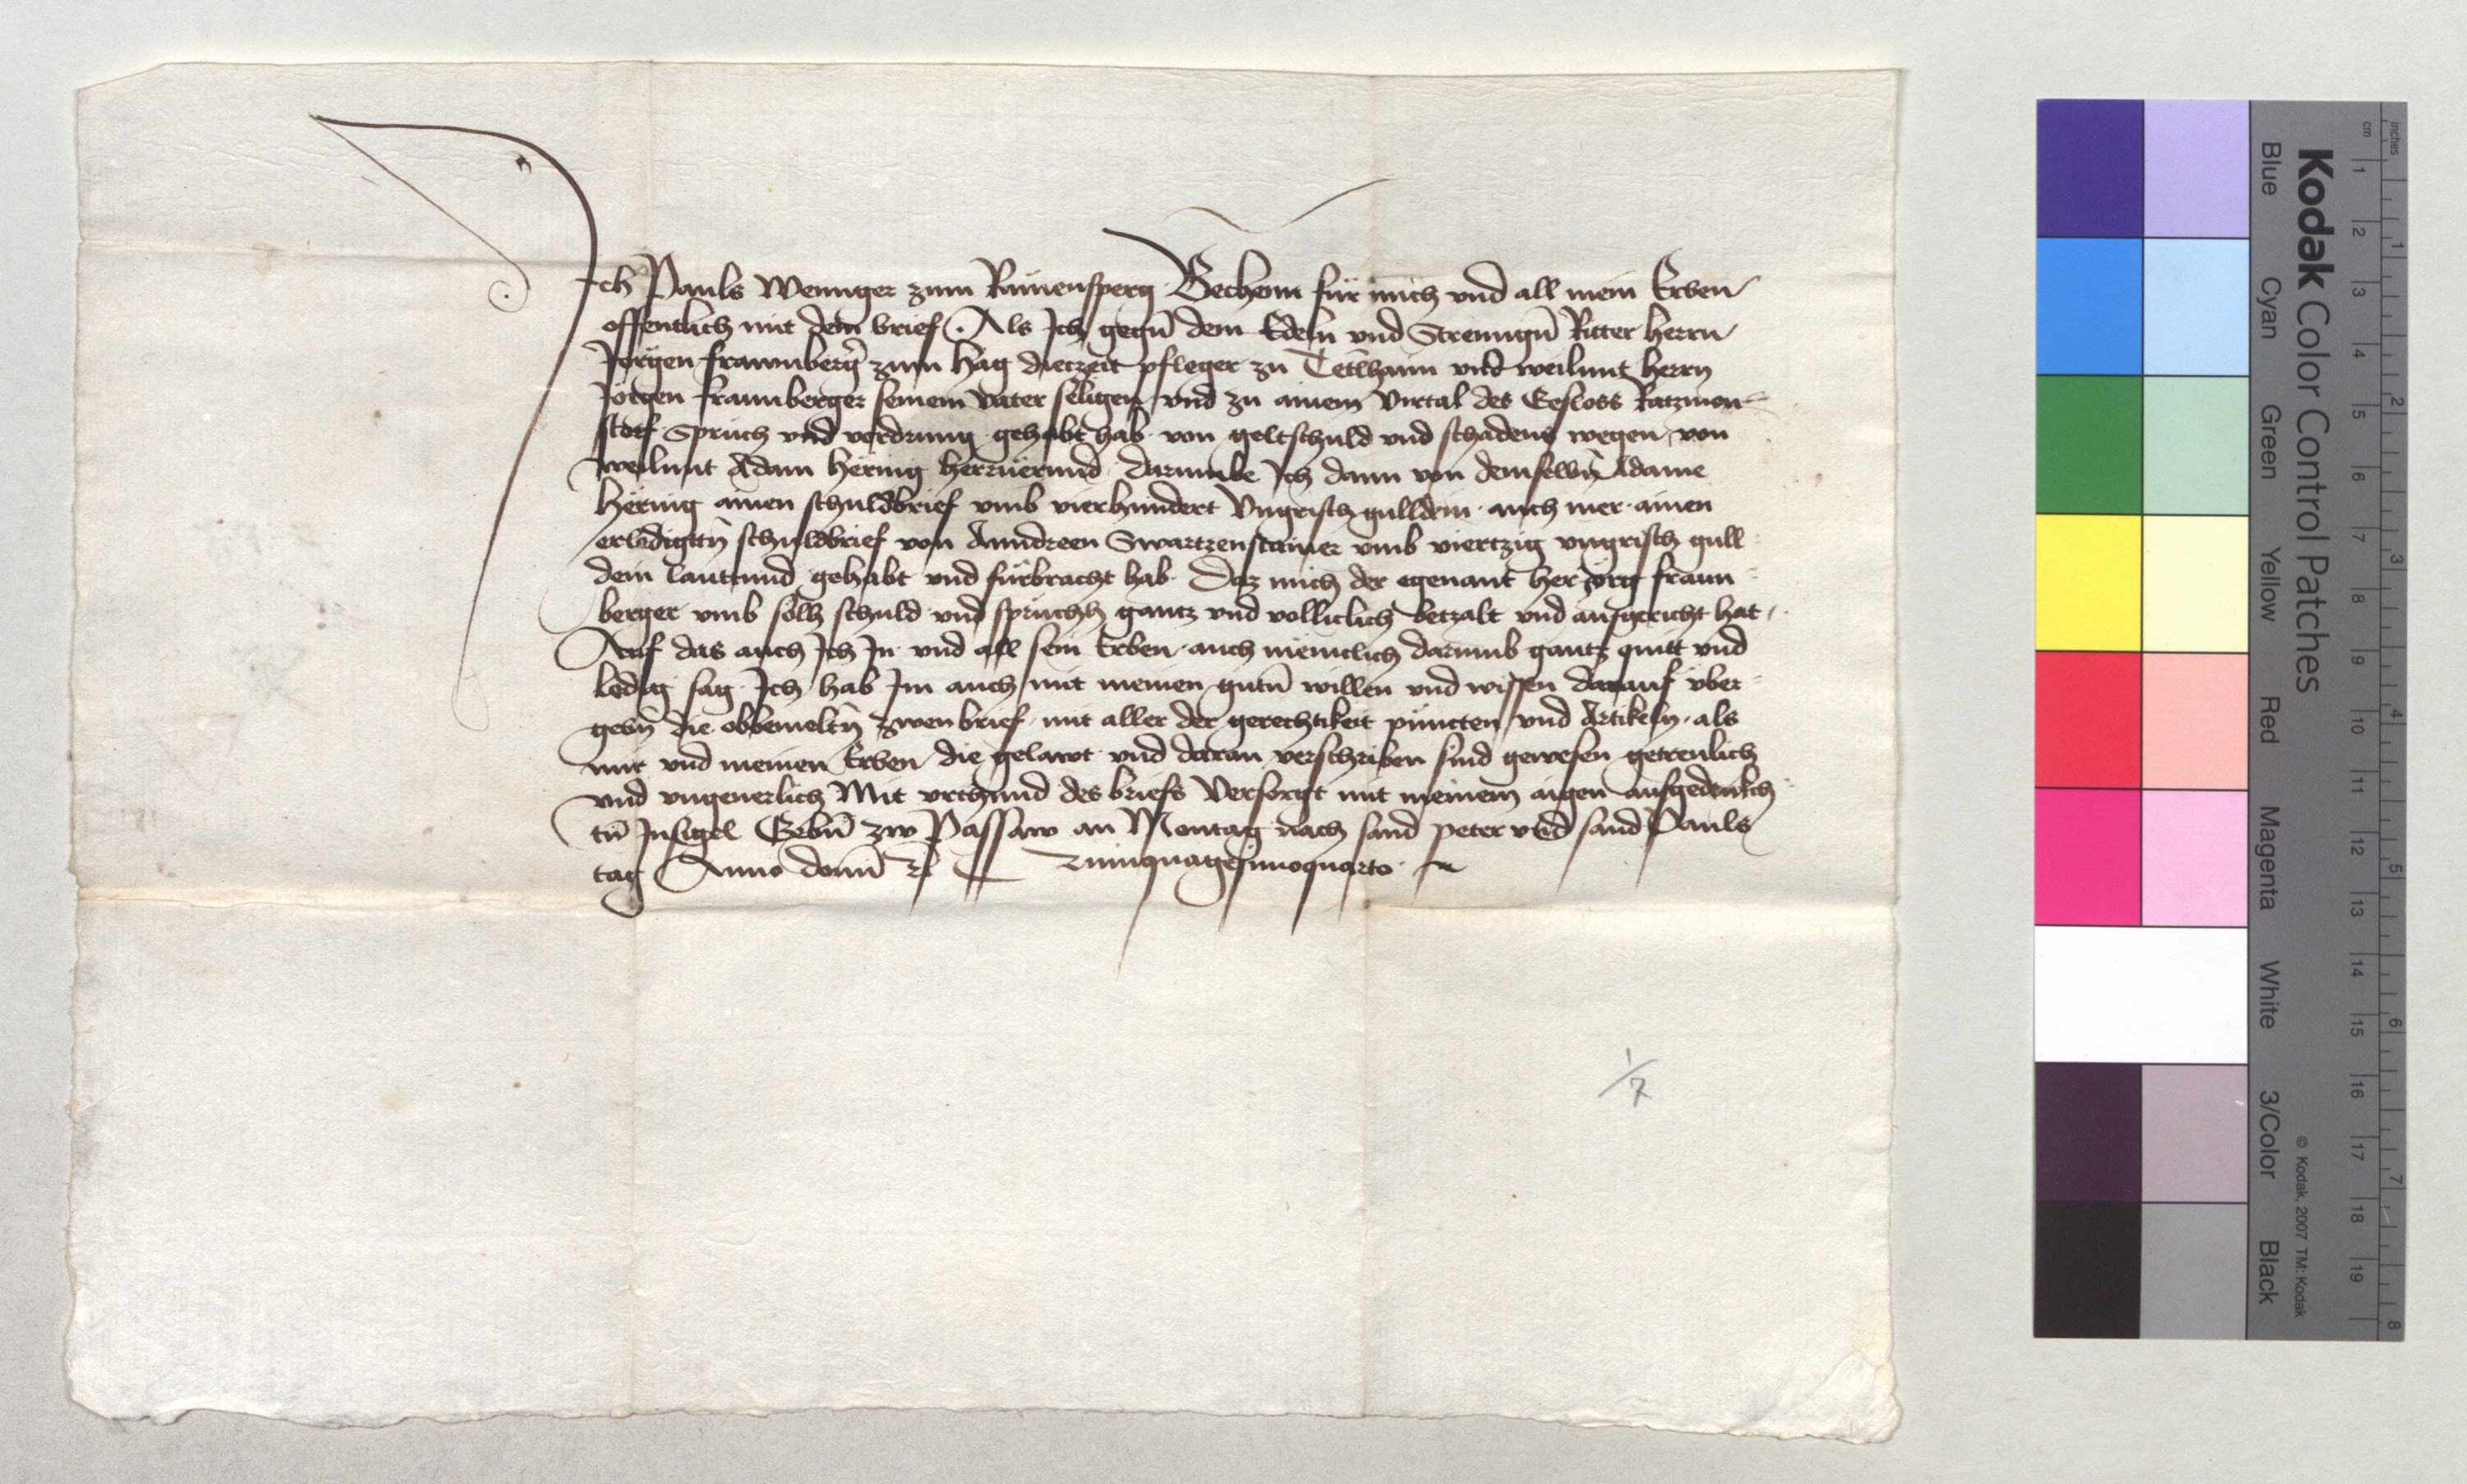 Ich Pauls Wennger zum Ramensperg Bechenn für mich vnd all mein Erben
offentlich mit dem brief Als Ich gegn̄ dem Edeln vnd Strenngn̄ Ritter herrn
Jörgen frawnberg̉ zum Hag dietzeit pfleger zu vnd weilunt herrn
Jörgen fraunberger seinem vater seligen vnd zu ainem virtal des Gesloss Katzmon
storf Spruch vnd vordrung gehabt hab von geltschuld vnd schadens wegen von
weilunt Adam Hering herrüerund darumbe Ich dann von demselbn̄ Adame
Hering ainen schuldbrief vmb vierhundert Vngrisch gulldein auch mer ainen
erledigtn̄ schuldbrief von Anndreen Swartzenstainer vmb viertzig vngrisch gull
dein lautund gehabt vnd fürbracht hab Daz mich der egenant her Jörg fraun
berger vmb sölh schuld vnd sprüchh gantz vnd volliclich betzalt vnd ausgericht hat
Auf das auch Ich In vnd all sein Erben auch meniclich darumb gantz quitt vnd
ledig sag Ich hab Im auch mit meinen gutn̄ willen vnd wissen darauf vber
gebn̄ die obbemeltn̄ zwen brief mit aller der gerechtikeit püncten vnd Artikeln als
mir vnd meinen Erben die gelawt vnd daran verschriben sind gewesen getreulich
vnd vngeuerlich Mit vrchund des briefs Versorgt mit meinem aigen aufgedrukch
tn̄ Insigel Gebn̄ zw Passaw an Montag nach sand peter vnd sand Pauls
tag Anno domī Quinquagesimoquarto
1/7
Kodak Color Control Patches
Blue Cyan Green Yellow Red Magenta White 3/Color Black
© Kodak, 2007 TM: Kodak
cm 1 2 3 4 5 6 7 8 9 10 11 12 13 14 15 16 17 18 19
inches 1 2 3 4 5 6 7 8